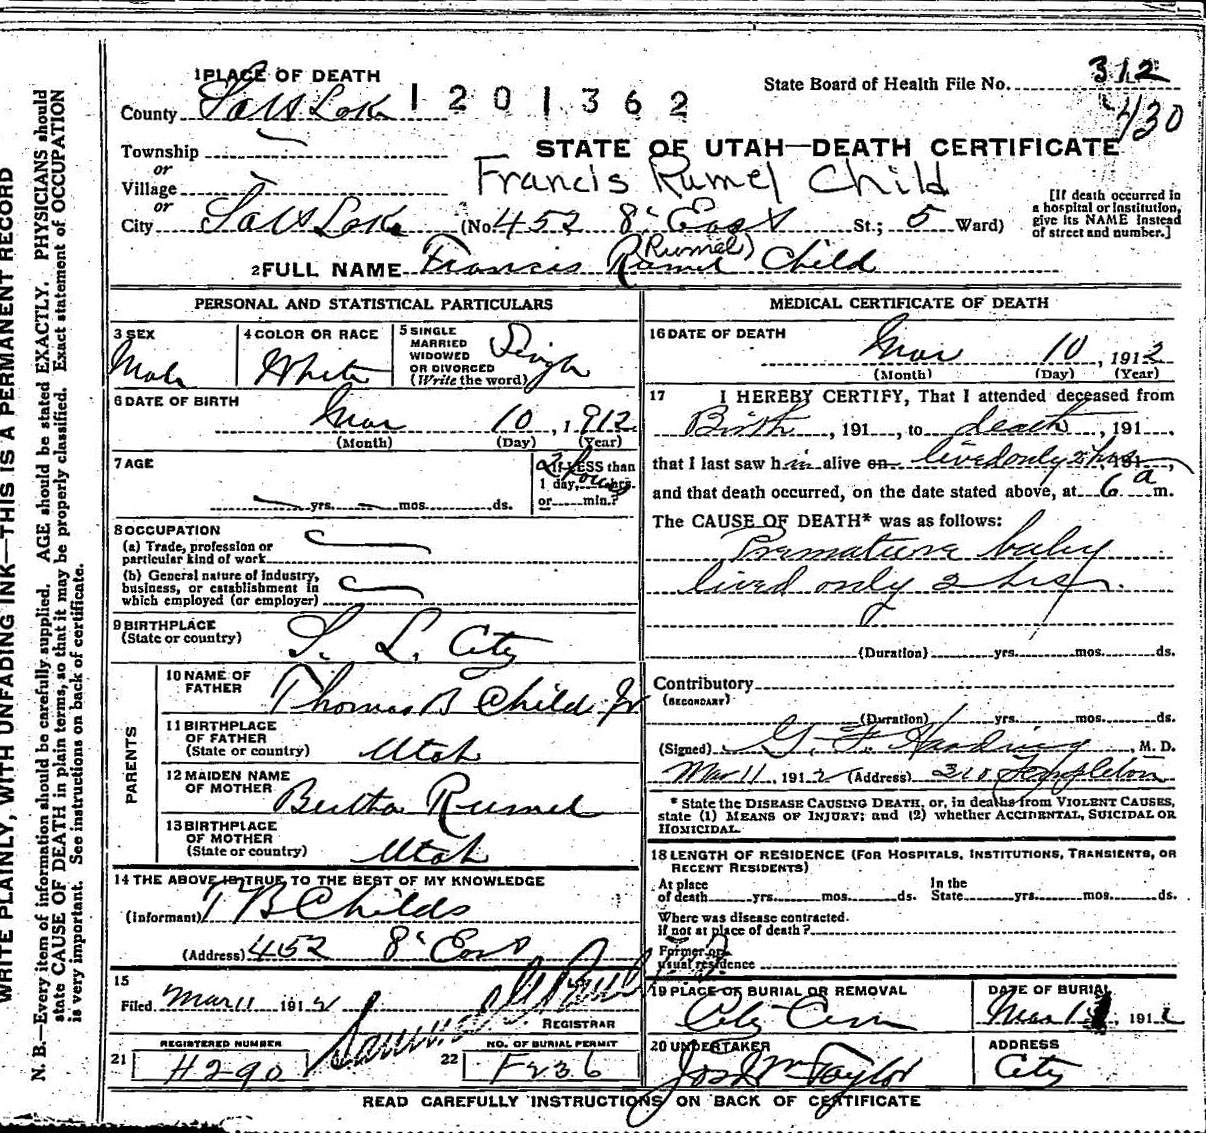 WRITE PLAINLY, WITH UNFADING INK—THIS IS A PERMANENT RECORD
N. B.—Every item of information should be carefully supplied. AGE should be stated EXACTLY. PHYSICIANS should
state CAUSE OF DEATH in plain terms, so that it may be properly classified. Exact statement of OCCUPATION
is very important. See instructions on back of certificate.
1 PLACE OF DEATH
State Board of Health File No. 312
County Salt Lake 1201362
430
Township
or
STATE OF UTAH—DEATH CERTIFICATE
Village
Francis Rumel Child
or
City Salt Lake (No. 452 8" East St.; 5 Ward)
[If death occurred in
a hospital or institution,
give its NAME instead
of street and number.]
(Rumel)
2 FULL NAME Francis Rumel Child
PERSONAL AND STATISTICAL PARTICULARS
3 SEX
Male
4 COLOR OR RACE
White
5 SINGLE
MARRIED
WIDOWED
OR DIVORCED
(Write the word)
Single
6 DATE OF BIRTH
Mar 10, 1912
(Month) (Day) (Year)
7 AGE
yrs. mos. ds.
If LESS than
1 day, hrs.
or min.?
2 hours
8 OCCUPATION
(a) Trade, profession or
particular kind of work
(b) General nature of industry,
business, or establishment in
which employed (or employer)
9 BIRTHPLACE
(State or country)
S. L. City
PARENTS
10 NAME OF
FATHER
Thomas B Child Jr
11 BIRTHPLACE
OF FATHER
(State or country)
Utah
12 MAIDEN NAME
OF MOTHER
Bertha Rumel
13 BIRTHPLACE
OF MOTHER
(State or country)
Utah
14 THE ABOVE IS TRUE TO THE BEST OF MY KNOWLEDGE
(Informant) T B Childs
(Address) 452 8" East
15
Filed Mar 11 1912
REGISTRAR
21
REGISTERED NUMBER
H290
22
NO. OF BURIAL PERMIT
F236
MEDICAL CERTIFICATE OF DEATH
16 DATE OF DEATH
Mar 10, 1912
(Month) (Day) (Year)
17 I HEREBY CERTIFY, That I attended deceased from
Birth, 191, to death, 191,
that I last saw him alive on lived only 2 hrs, 191,
and that death occurred, on the date stated above, at 6 a m.
The CAUSE OF DEATH* was as follows:
Premature baby
lived only 2 hrs.
(Duration) yrs. mos. ds.
Contributory
(SECONDARY)
(Duration) yrs. mos. ds.
(Signed) G. F. Harding, M. D.
Mar 11, 1912 (Address) 310 Templeton
* State the DISEASE CAUSING DEATH, or, in deaths from VIOLENT CAUSES,
state (1) MEANS OF INJURY; and (2) whether ACCIDENTAL, SUICIDAL OR
HOMICIDAL.
18 LENGTH OF RESIDENCE (FOR HOSPITALS, INSTITUTIONS, TRANSIENTS, OR
RECENT RESIDENTS)
At place
of death yrs. mos. ds.
In the
State yrs. mos. ds.
Where was disease contracted.
If not at place of death?
Former or
usual residence
19 PLACE OF BURIAL OR REMOVAL
City Cem
DATE OF BURIAL
Mar 11, 1912
20 UNDERTAKER
Jos Wm Taylor
ADDRESS
City
READ CAREFULLY INSTRUCTIONS ON BACK OF CERTIFICATE